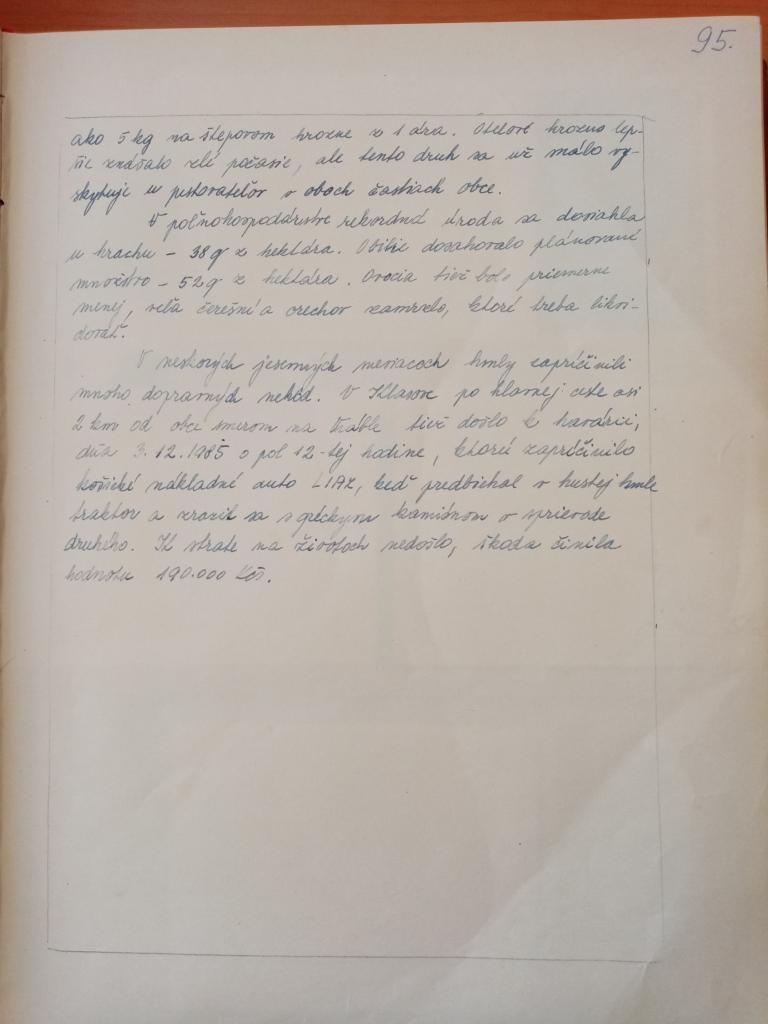 95.
ako 5 kg na štepovom hrozne z 1 ára. Otelové hrozno lep-
šie znášalo zlé počasie, ale tento druh sa už málo vy-
skytuje u pestovateľov v oboch častiach obce.
V poľnohospodárstve rekordná úroda sa dosiahla
u hrachu - 38 q z hektára. Obilie dosahovalo plánované
množstvo - 52 q z hektára. Ovocia tiež bolo priemerne
menej, veľa čerešní a orechov zamrzlo, ktoré treba likvi-
dovať.
V neskorých jesenných mesiacoch hmly zapríčinili
mnoho dopravných nehôd. V Klasove po hlavnej ceste asi
2 km od obci smerom na Vráble tiež došlo k havárii,
dňa 3.12.1985 o pol 12-tej hodine, ktorú zapríčinilo
košické nákladné auto LIAZ, keď predbiehal v hustej hmle
traktor a zrazil sa s gréckym kamiónom v sprievode
druhého. K strate na životoch nedošlo, škoda činila
hodnotu 190.000 Kčs.